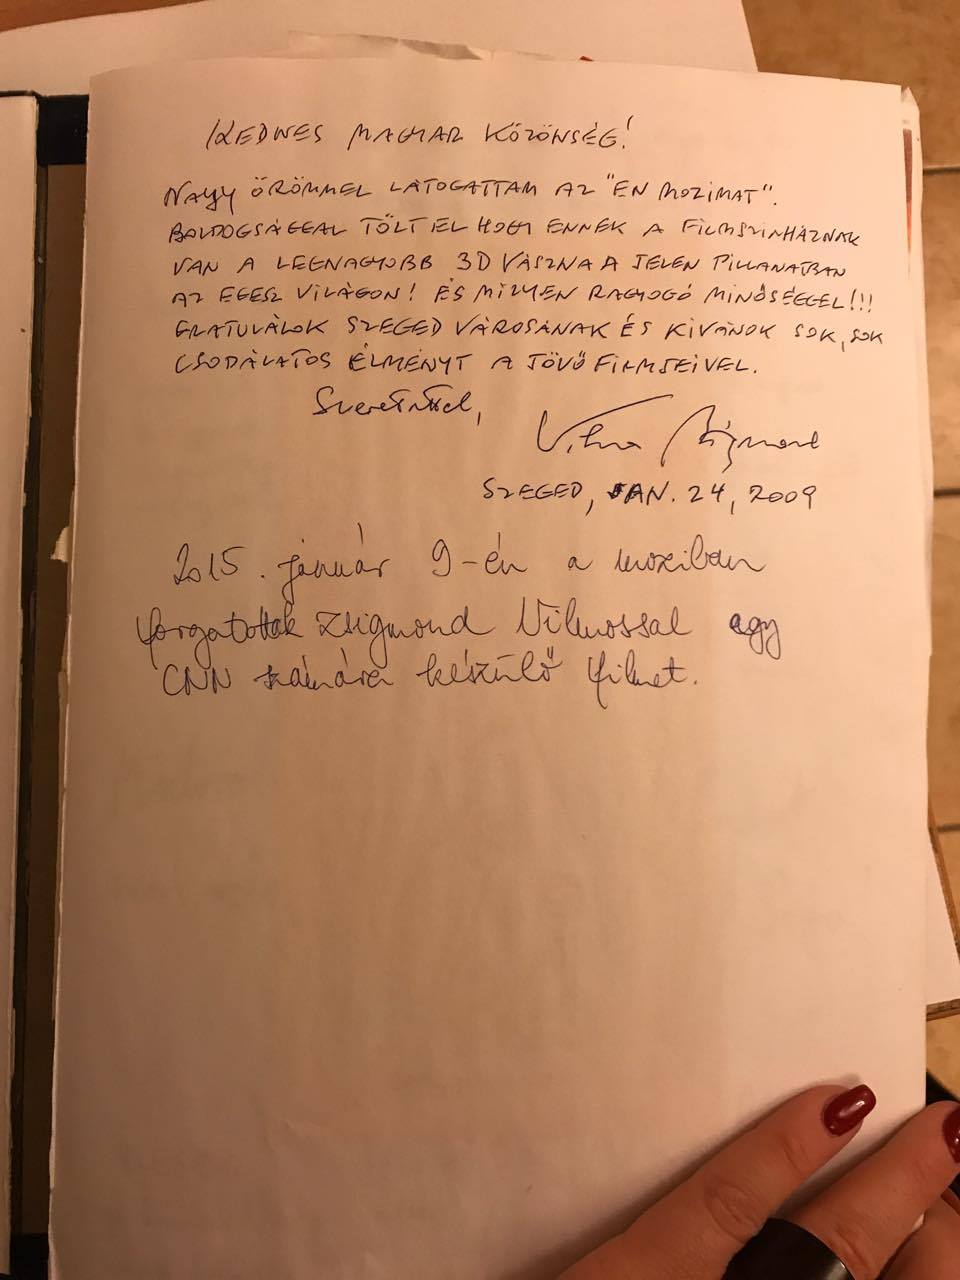 KEDVES MAGYAR KÖZÖNSÉG!
NAGY ÖRÖMMEL LÁTOGATTAM AZ "ÉN MOZIMAT".
BOLDOGSÁGGAL TÖLT EL HOGY ENNEK A FILMSZINHÁZNAK
VAN A LEGNAGYOBB 3D VÁSZNA A JELEN PILLANATBAN
AZ EGESZ VILÁGON! ÉS MILYEN RAGYOGÓ MINŐSÉGGEL!!!
GRATULÁLOK SZEGED VÁROSÁNAK ÉS KIVÁNOK SOK, SOK
CSODÁLATOS ÉLMÉNYT A JÖVŐ FILMJEIVEL.
Szeretettel,
Vilmos Zsigmond
SZEGED, JAN. 24, 2009
2015. január 9-én a moziban
forgatottak Zsigmond Vilmossal egy
CNN számára készülő filmet.